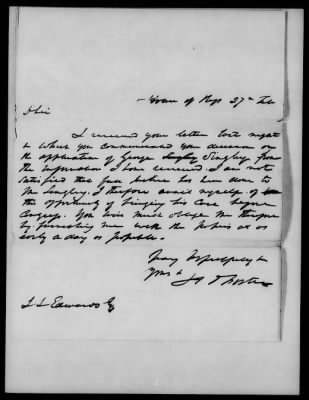 House of Reps 27th Feb
Sir
I received your letter last night
in which you communicated your decision on
the application of George Singley from
the information I have received. I am not
satisfied that full justice has been done to
Mr Singley. I therefore avail myself of
the opportunity of bringing his Case before
Congress. You will much oblige me therefore
by furnishing me with the papers at as
early a day as possible.
Very Respectfully
Yours &
J L Edwards Esq